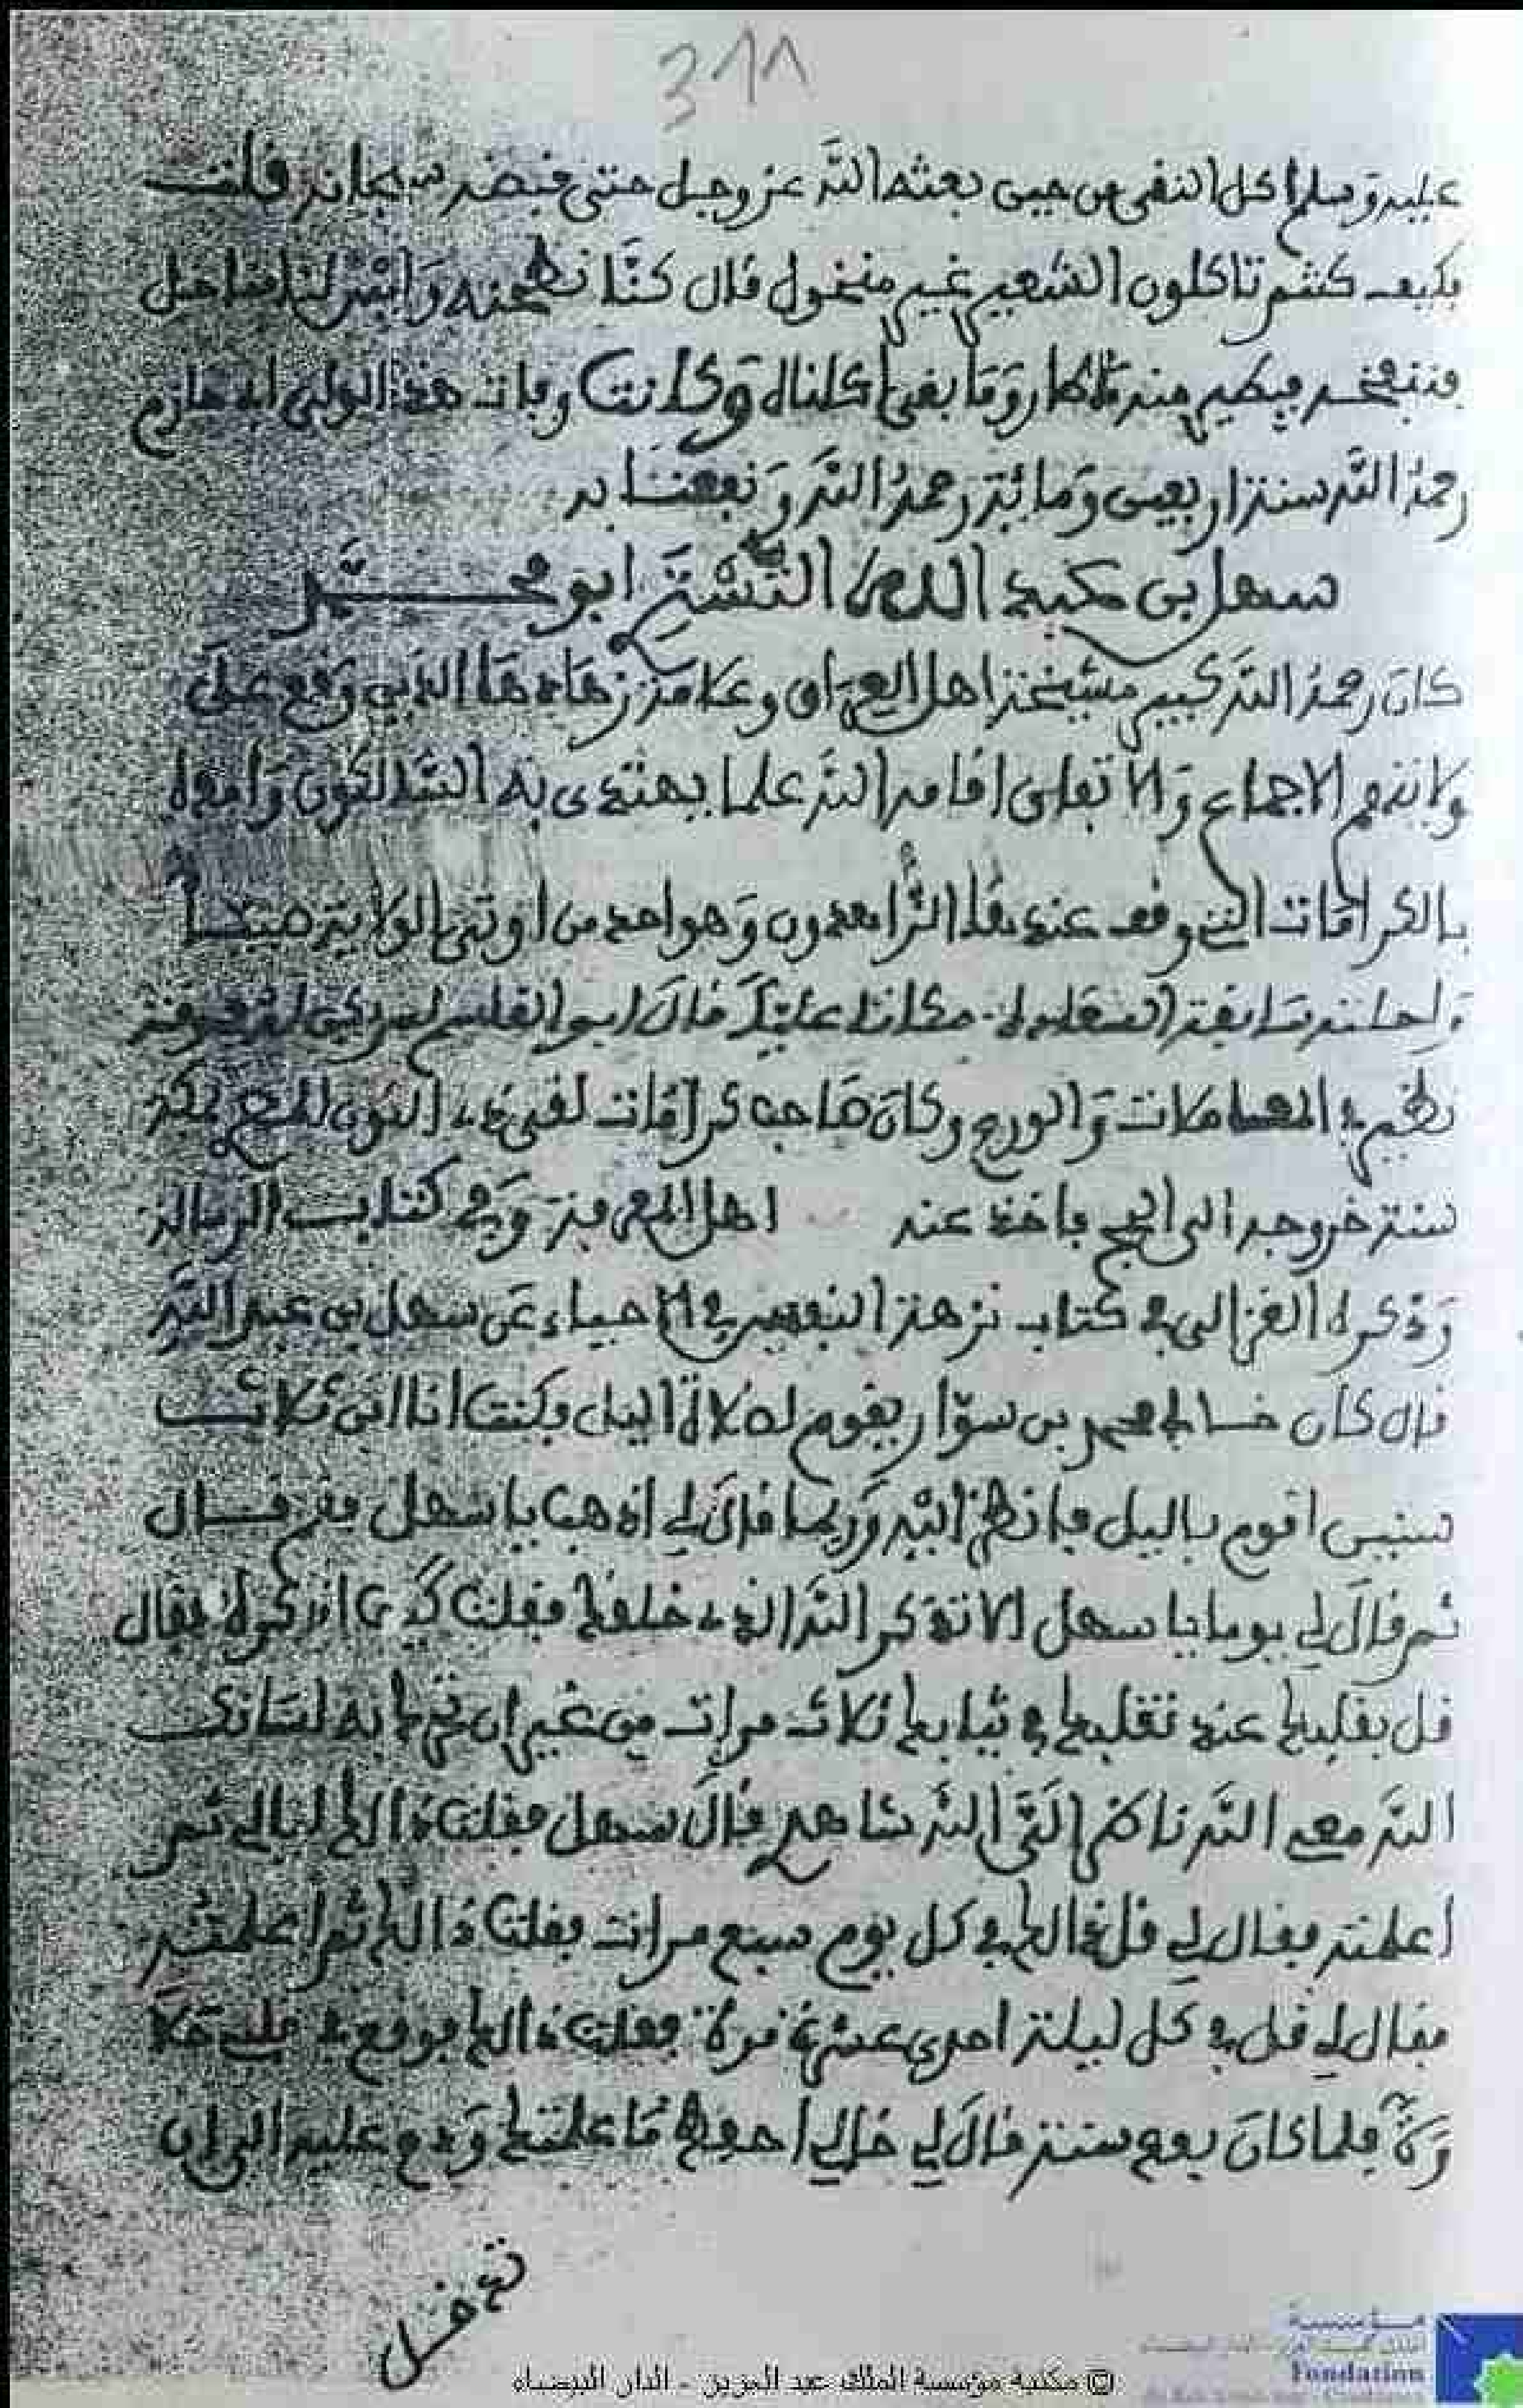 311
عليه وسلم اكل النقي من حين بعثه الله عز وجل حتى قبضه سبحانه فلت
فكيف كنتم تاكلون الشعير غير منخول قال كنا نطحنه و
فننفخه فيطير منه ما طار وما بقي اكلناه وكانت وفات هذا الولي ابي حازم
رحمه الله سنة اربعين ومائة رحمه الله ونفعنا به
سهل بن عبد الله التستري ابو محمد
كان رحمه الله كبير مشيخة اهل العراق وعلامة زهادها الذي وقع على
ولايته الاجماع والاتفاق اقامه الله علما يهتدي به السالكون وامده
بالكرامات التي وقف عندها الزاهدون وهو احد من اوتي الولاية صبيا
واحلته سابقة السعادة مكانا عليا قال ابو القاسم لم يكن له في وقته
نظير في المعاملات والورع وكان صاحب كرامات لقي ذي النون المصري بمكة
سنة خروجه الى الحج فاخذ عنه اهل المعرفة وفي كتاب الرسالة
وذكره الغزالي في كتاب رياضة النفس في الاحياء عن سهل بن عبد الله
قال كان خالي محمد بن سوار يقوم لصلاة اليل وكنت انا ابن ثلاث
سنين اقوم باليل فانظر اليه وربما قال لي اذهب يا سهل فنم قال
ثم قال لي يوما يا سهل الا تذكر الله الذي خلقك فقلت كيف اذكره فقال
قل بقلبك عند تقلبك في ثيابك ثلاث مرات من غير ان تحرك به لسانك
الله معي الله ناظر الي الله شاهدي قال سهل فقلت ذالك ليالي ثم
اعلمته فقال لي قل ذالك في كل يوم سبع مرات فقلت ذالك ثم اعلمته
فقال لي قل في كل ليلة احدى عشرة مرة فقلت ذالك فوقع في قلبي حلا
وة فلما كان بعد سنة قال لي خالي احفظ ما علمتك ودم عليه الى ان
تدخل
© مكتبة مؤسسة الملك عبد العزيز - الدار البيضاء
مؤسسة
Fondation